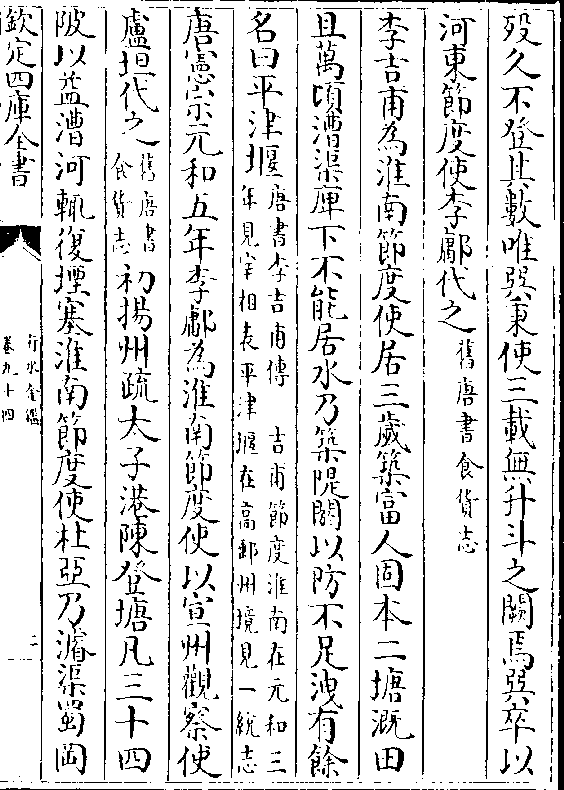 歿久不登其數唯巽秉使三載無升斗之闕焉巽卒以
河東節度使李鄘代之舊唐書食貨志
李吉甫為淮南節度使居三歲築富人固本二塘溉田
且萬頃漕渠庳下不能居水乃築隄閼以防不足洩有餘
名曰平津堰唐書李吉甫傳 吉甫節度淮南在元和三
年見宰相表平津堰在高郵州境見一統志
唐憲宗元和五年李鄘為淮南節度使以宣州觀察使
盧坦代之舊唐書
食貨志初揚州疏太子港陳登塘凡三十四
陂以益漕河輒復堙塞淮南節度使杜亞乃濬渠蜀岡
欽定四庫全書
行水金鑑
卷九十四
二